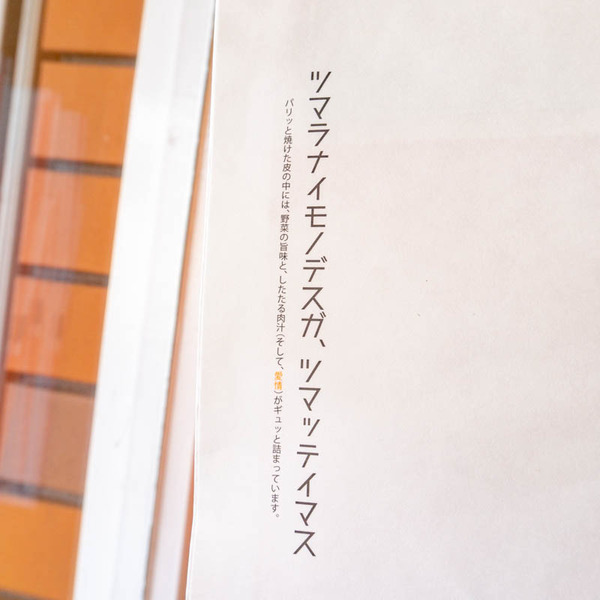 ツマラナイモノデスガ、ツマッテイマス
パリッと焼けた皮の中には、野菜の旨味と、したたる肉汁(そして、愛情)がギュッと詰まっています。